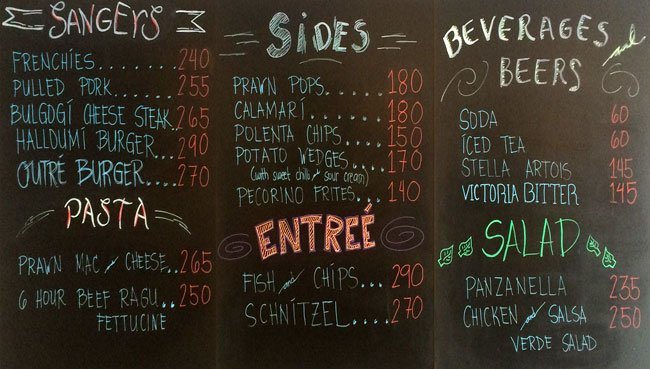 SANGERS
FRENCHIES.......240
PULLED PORK.....255
BULGOGI CHEESE STEAK..265
HALLOUMI BURGER...290
OUTRÉ BURGER....270
PASTA
PRAWN MAC n CHEESE..265
6 HOUR BEEF RAGU..250
FETTUCINE
SIDES
PRAWN POPS.....180
CALAMARÍ.......180
POLENTA CHIPS....150
POTATO WEDGES...170
(with sweet chilli & sour cream)
PECORINO FRITES..140
ENTREÉ
FISH and CHIPS...290
SCHNÍTZEL....270
BEVERAGES and
BEERS
SODA 60
ICED TEA 60
STELLA ARTOIS 145
VICTORIA BITTER 145
SALAD
PANZANELLA 235
CHICKEN and SALSA 250
VERDE SALAD